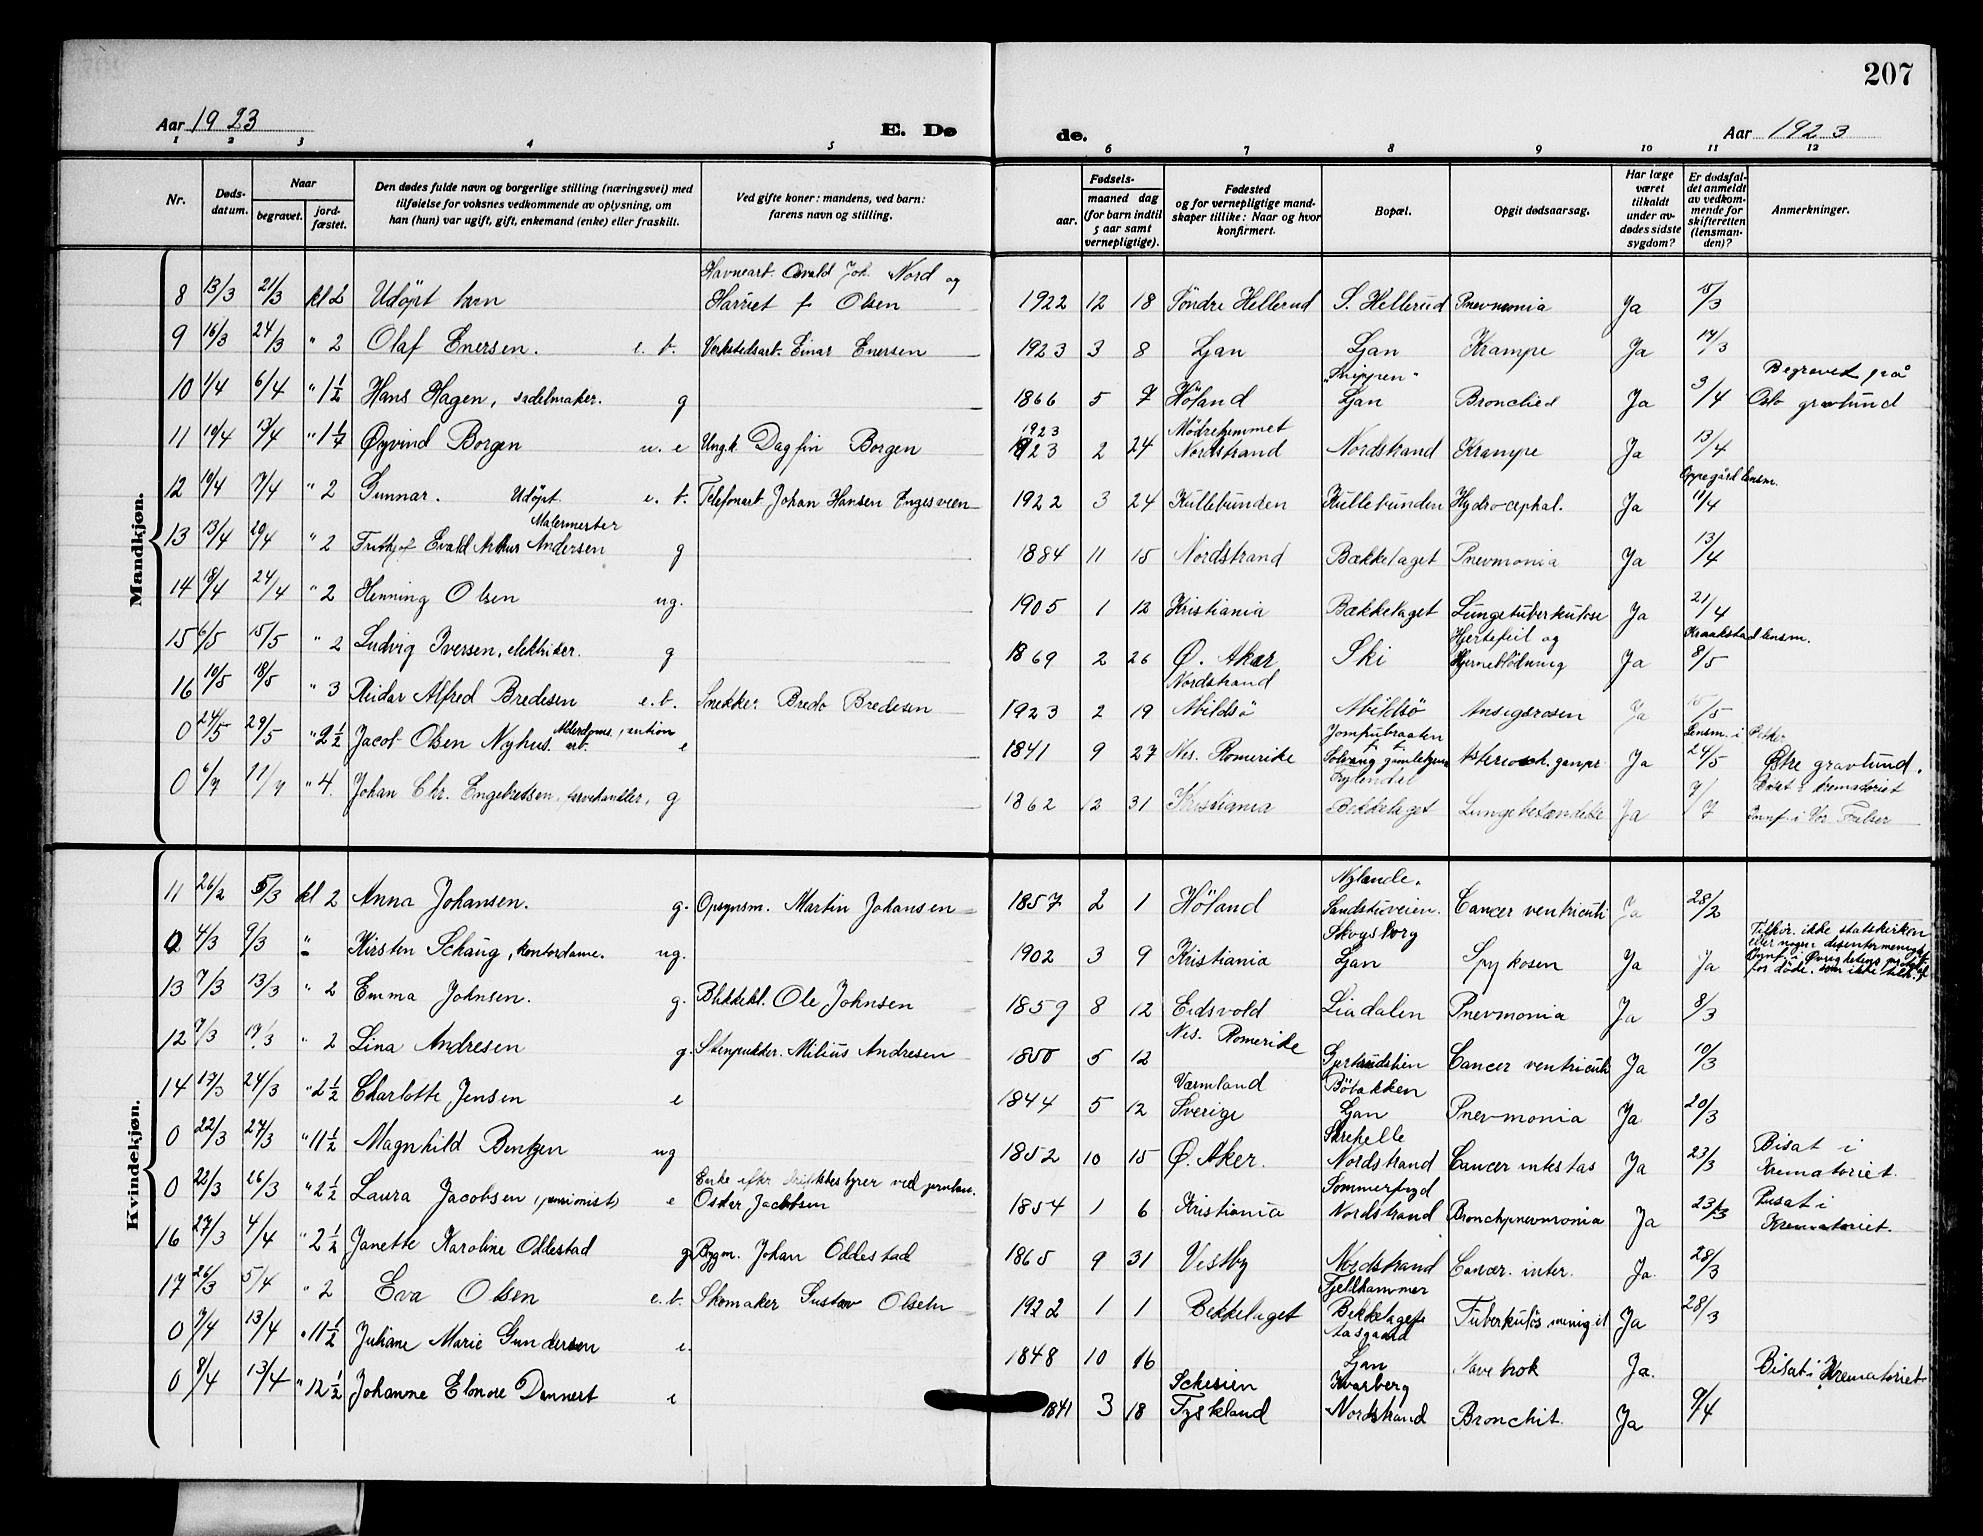 207
Aar 1923 E. Dø de. Aar 1923
1 2 3 4 5 6 7 8 9 10 11 12
Nr. Døds-datum. Naar begravet. jord-fæstet. Den dødes fulde navn og borgerlige stilling (næringsvei) med tilføielse for voksnes vedkommende av oplysning, om han (hun) var ugift, gift, enkemand (enke) eller fraskilt. Ved gifte koner: mandens, ved barn: farens navn og stilling. Fødsels- aar. maaned dag (for barn indtil 5 aar samt vernepligtige). Fødested og for vernepligtige mandskaper tillike: Naar og hvor konfirmert. Bopæl. Opgit dødsaarsag. Har læge været tilkaldt under avdødes sidste sygdom? Er dødsfaldet anmeldt av vedkommende for skifteretten (lensmanden)? Anmerkninger.
Mandkjøn.
Havneart. Osvald Joh. Nord og
8 13/3 21/3 kl 2 Udöpt barn Harriet f. Olsen 1922 12 18 Söndre Hellerud S. Hellerud Pnevmonia Ja 15/3
9 16/3 24/3 " 2 Olaf Enersen. e. b. Verkstedsarb. Einar Enersen 1923 3 8 Ljan Ljan Krampe Ja 17/3
10 1/4 6/4 " 1½ Hans Hagen, sadelmaker. g 1866 5 7 Höland Ljan Ja 3/4 Begravet på Oslo gravlund
11 10/4 13/4 Øyvind Borgen u. e Ungk. Dagfin Borgen 1923 2 24 Mödrehjemmet Nordstrand Nordstrand Krampe Ja 13/4
12 10/4 " 2 Gunnar. Udöpt e. b. Telefonarb. Johan Hansen Engesveen 1922 3 24 Kullebunden Kullebunden Hydrocephal. Ja Oppegård lensm. 11/4
13 13/4 20/4 " 2 Frithjof Evald Arthur Andersen Malermester g 1884 11 15 Nordstrand Bækkelaget Pnevmonia Ja 13/4
14 18/4 24/4 " 2 Henning Olsen ug. 1905 1 12 Kristiania Bækkelaget Lungetuberkulose Ja 21/4
15 6/5 15/5 " 2 Ludvig Iversen, elektriker. g 1869 2 26 Ø. Aker Ski Hjertefeil og Hjerneblödning Ja Kraakstad lensm. 8/5
16 10/5 18/5 " 3 Reidar Alfred Bredesen e. b. Snekker Bredo Bredesen 1923 2 19 Nordstrand Abildsö Abildsö Ansigtsrosen Ja
0 24/5 29/5 " 2½ Jacob Olsen Nyhus. e 1841 9 27 Nes. Romerike Solvang gamlehjem Ja 24/5 Østre gravlund.
0 6/7 11/7 " 4. Johan Chr. Engebretsen, farvehandler, g 1862 12 31 Kristiania Bekkelaget Lungebetændelse Ja 7/7 Bisat i krematoriet Innf. i Vor Frelser
Kvindekjøn.
11 26/2 5/3 kl 2 Anna Johansen. g. Opsynsm. Martin Johansen 1857 2 1 Höland Nylænde. Sandstuveien. Cancer ventriculi Ja 28/2
4/3 9/3 " Kirsten Schaug, kontordame. ug. 1902 3 9 Kristiania Skogsborg Ljan Ja Ja Tilhör. ikke statskirken
13 7/3 13/3 " 2 Emma Johnsen. g. Blikkksl. Ole Johnsen 1859 8 12 Eidsvold Lindalen Pnevmonia Ja 8/3
12 7/3 " 2 Lina Andresen g. Stenpukker. Milius Andresen 1850 5 12 Nes. Romerike Cancer ventriculi Ja 10/3
14 17/3 24/3 " 2½ Charlotte Jensen e 1844 5 12 Værmland Sverige Böbakken Ljan Pnevmonia Ja 20/3
0 22/3 27/3 " 11½ Magnhild Bentzen ug 1852 10 15 Ø. Aker. Nordstrand Cancer intestas Ja 23/3 Bisat i krematoriet.
0 22/3 26/3 " 2½ Laura Jacobsen, pensionist, e Enke efter Oskar Jacobsen 1854 1 6 Kristiania Sommerfryd Nordstrand Bronchpnevmonia Ja 23/3 Bisat i Krematoriet.
16 27/3 4/4 " 2½ Janette Karoline Oddestad g. Bygm. Johan Oddestad 1865 9 31 Vestby Nordstrand Cancer. inter. Ja. 28/3
17 26/3 5/4 " 2 Eva Olsen e. b. Skomaker Gustav Olsen 1922 1 1 Bekkelaget Fjellhammer Bekkelaget Tuberkulös mening it Ja 28/3
0 7/4 13/4 " 11½ Juliane Marie Gundersen e. 1848 10 16 Aasgaard Ljan Ja. Bisat i Krematoriet
0 8/4 13/4 " 12½ Johanne Elonore Dennert e 1841 3 18 Schesien Tyskland Kvarberg Nordstrand Bronchit. Ja 9/4